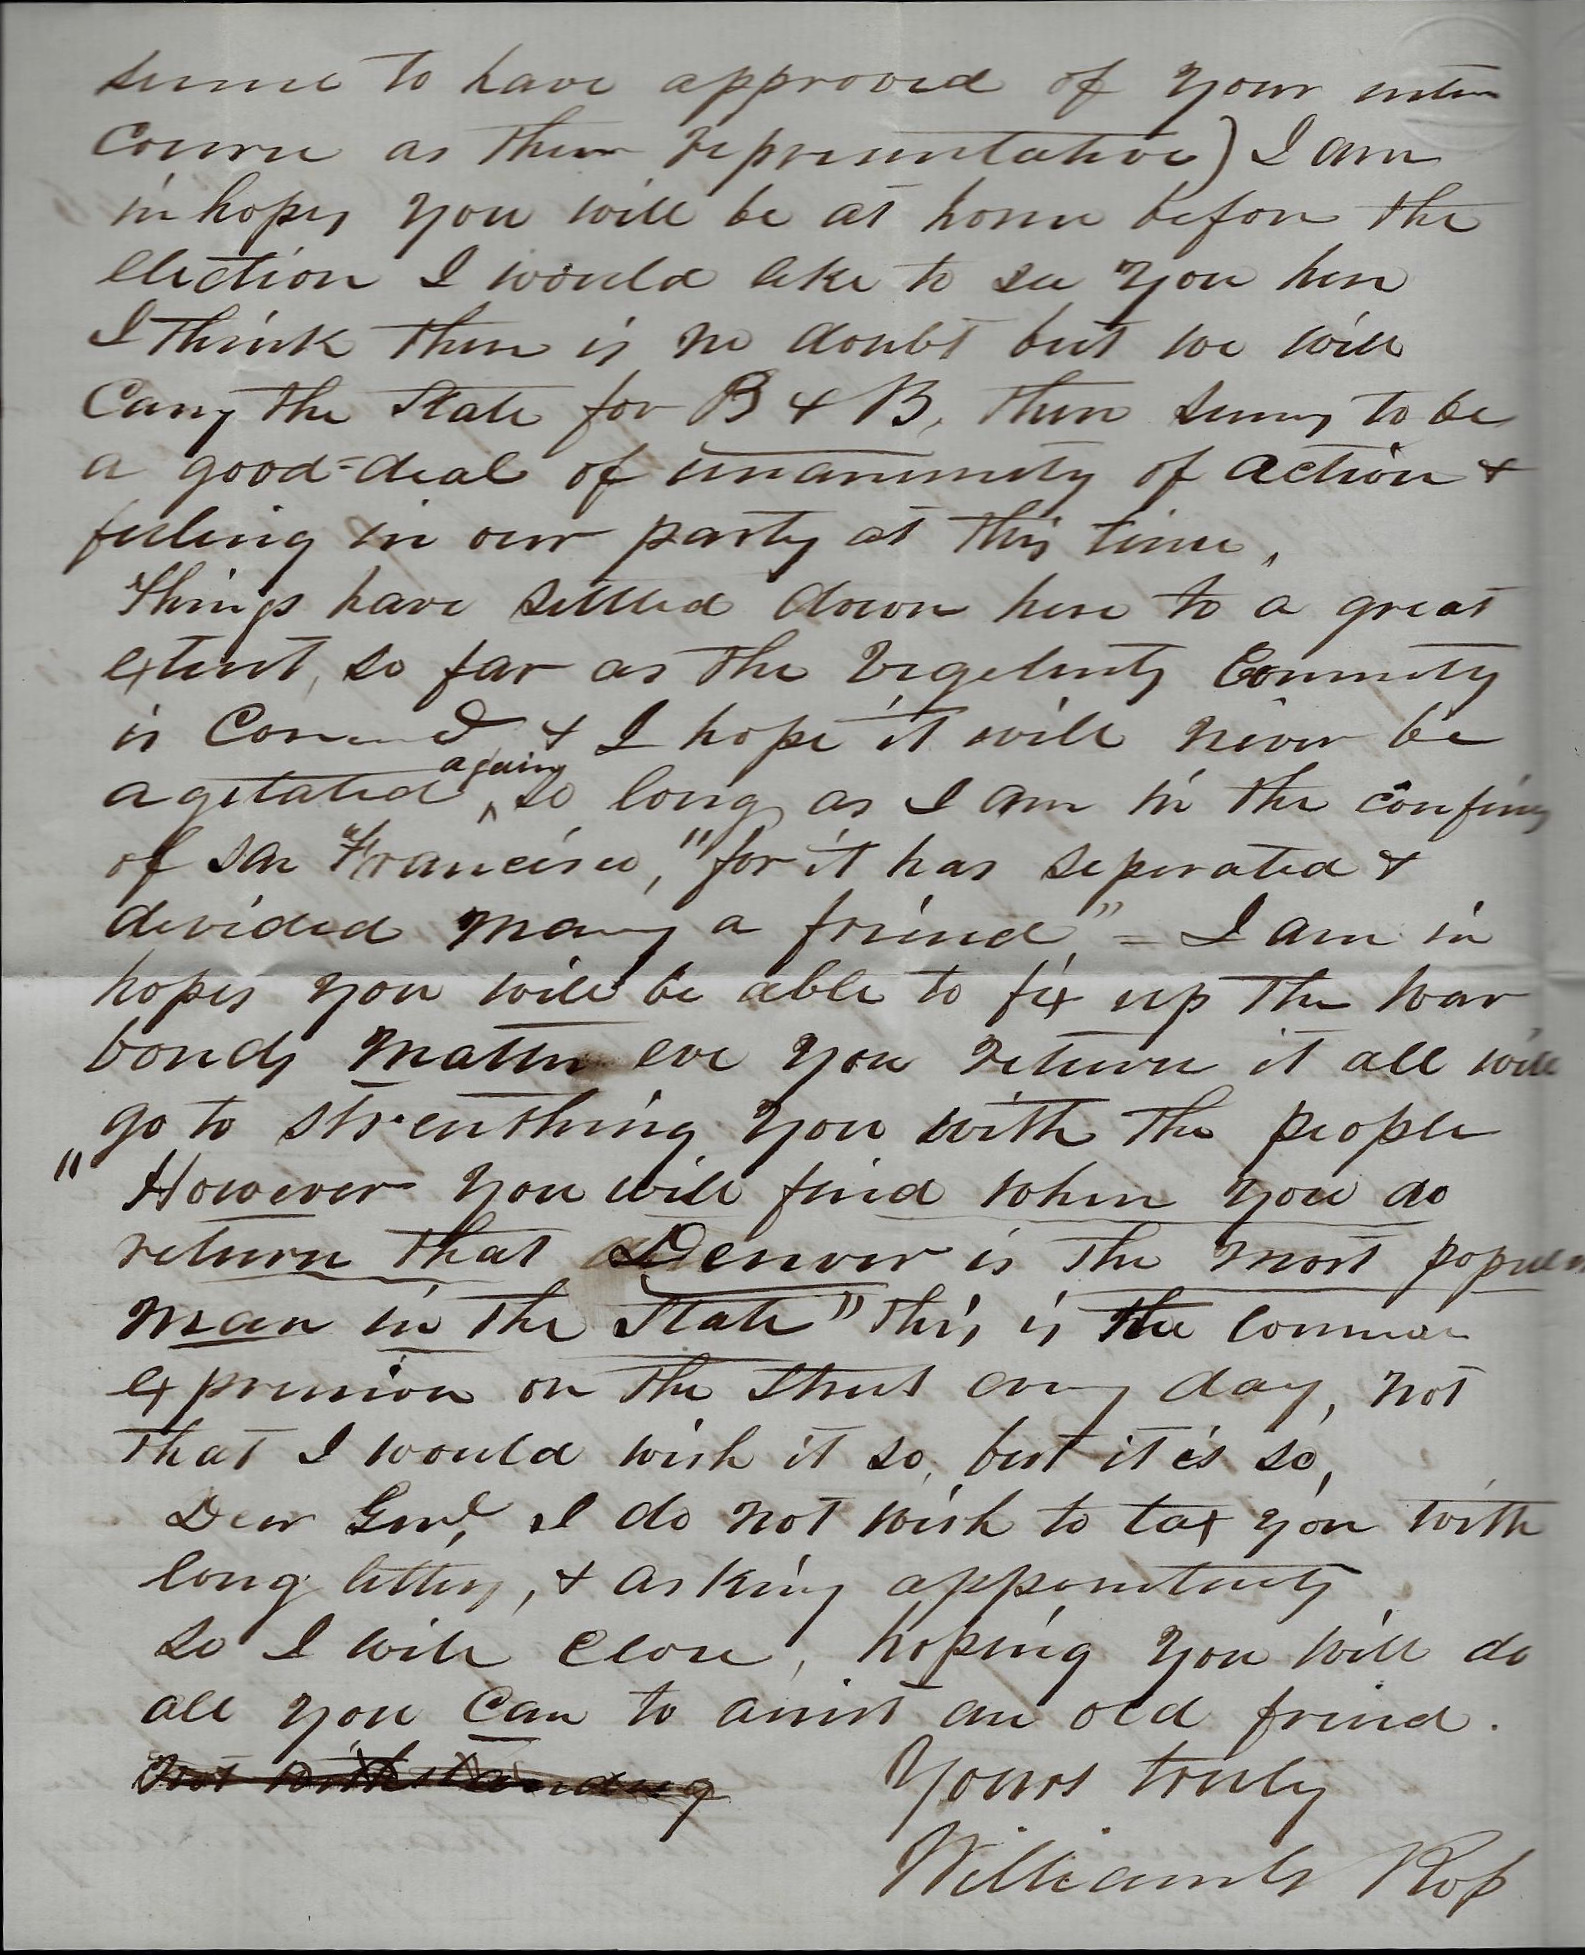 seeme to have approved of your entire
Course as their representative) I am
in hopes you will be at home before the
election I would like to see you here
I think there is no doubt but we will
Carry the State for B & B, there seems to be
a good=deal of unanimity of action &
feeling in our party at this time,
Things have settled down here to a great
extent, so far as the Vigelenty Commity
is Concerned & I hope it will never be
agetated again so long as I am in the confines
of San Francisco, "for it has seperated &
devided many a friend" = I am in
hopes you will be able to fix up the War
bonds matter ere you return it all will
go to strenthing you with the people
"However you will find when you do
return that Denver is the most popular
man in the State" this is the common
expression on the Street every day, not
that I would wish it so, but it is so,
Dear Genl, I do not wish to tax you with
long letters, & asking appointments
so I will close, hoping you will do
all you can to assist an old friend.
Not withstanding
Yours truly
William Ross